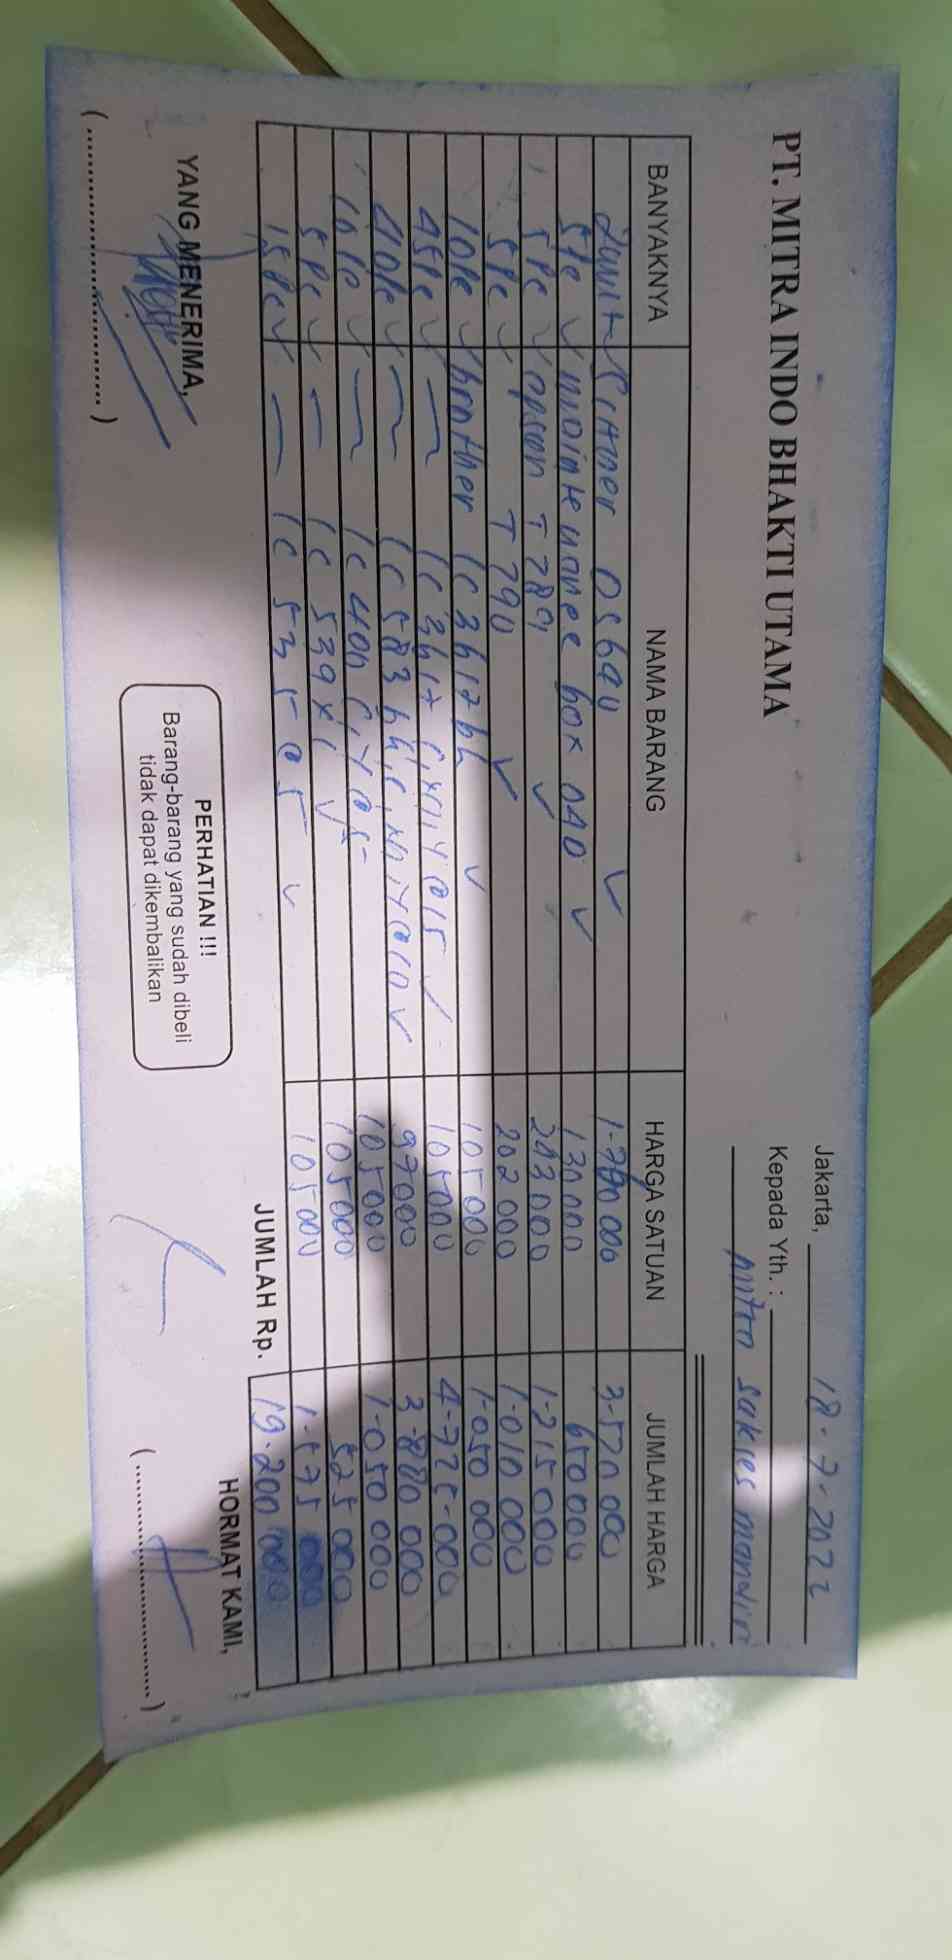 PT. MITRA INDO BHAKTI UTAMA
Jakarta, 18-7-2022
Kepada Yth. :
mitra sukses mandiri
BANYAKNYA NAMA BARANG HARGA SATUAN JUMLAH HARGA
2 unit DS640 000 3-520 000
5 Pc maintenance box 040 130 000 650 000
5 Pc epson T789 243 000 1-215 000
5 Pc T790 202 000 1-010 000
10 Pc brother lc 3617 bk 105 000 1-050 000
45 Pc — lc 3617 105000 4-725-000
40 Pc — lc 583 97000 3-880 000
10 Pc — lc 40n 105000 1-050 000
5 Pc — lc 539xl 105000 525 000
15 Pc — lc 105000 1-575 000
JUMLAH Rp. 19.200 000
YANG MENERIMA,
PERHATIAN !!!
Barang-barang yang sudah dibeli
tidak dapat dikembalikan
HORMAT KAMI,